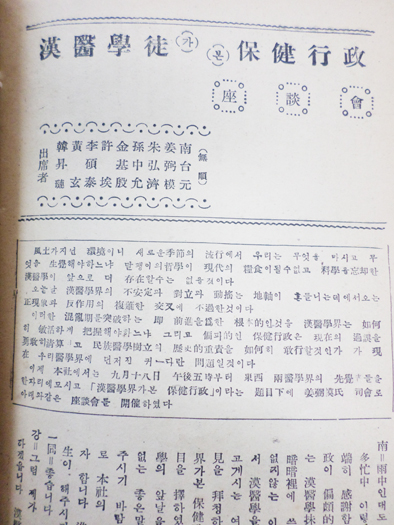 漢醫學徒가 본 保健行政
座談會
(無順)
南台元
姜弼模
朱弘濟
孫中允
金基殷
許埃
李碩泰
黃玄
韓昇璉
出席者
風土가지닌 環境이니 새로운季節의 流行에서 우리는 무엇을 마시고 무
엇을 生覺해야하느냐 달팽이의哲學이 現代의 糧食이될수없고 科學을忘却한
漢醫學이 앞으로 더 存在할수는 없을것이다
오늘날 漢醫學界의 不安定과 對立과 動搖는 地軸이 흔들니는데에서오는
正現象과 反作用의 複雜한 交叉에 不過한것이다
이러한 混亂期를突破하는 即 前進을爲한 根本的인것을 漢醫學界는 如何
히 敏活하게 把握해야하느냐 그리고 偏頗的인 保健行政은 現在의 過誤를
勇敢히淸算코 民族醫學樹立의 歷史的重責을 如何히 敢行할것인가 가 現
在 우리醫學界에 던저진 커ㅡ다란 問題일것이다
이제 本社에서는 九月十八日 午後五時부터 東西 兩醫學界의 先覺者들을
한자리에모시고「漢醫學界가본 保健行政」이라는 題目下에 姜弼模氏 司會로
아래와같은 座談會를 開催하였다
南=雨中인데도
多忙中 이렇
端히 感謝합
政이 偏頗的
는 漢醫學
暗暗裡에
없지않는 이
서 漢醫學을
고게시는 여
見을 拜聽하
界가본 保健
目을 擇하였
學의 앞날을
없는 좋은말
주시기 바랍
로 本社의
자 합니다
生이 해주시
一同=좋습니다
姜=그럼 제가
다겠습니다